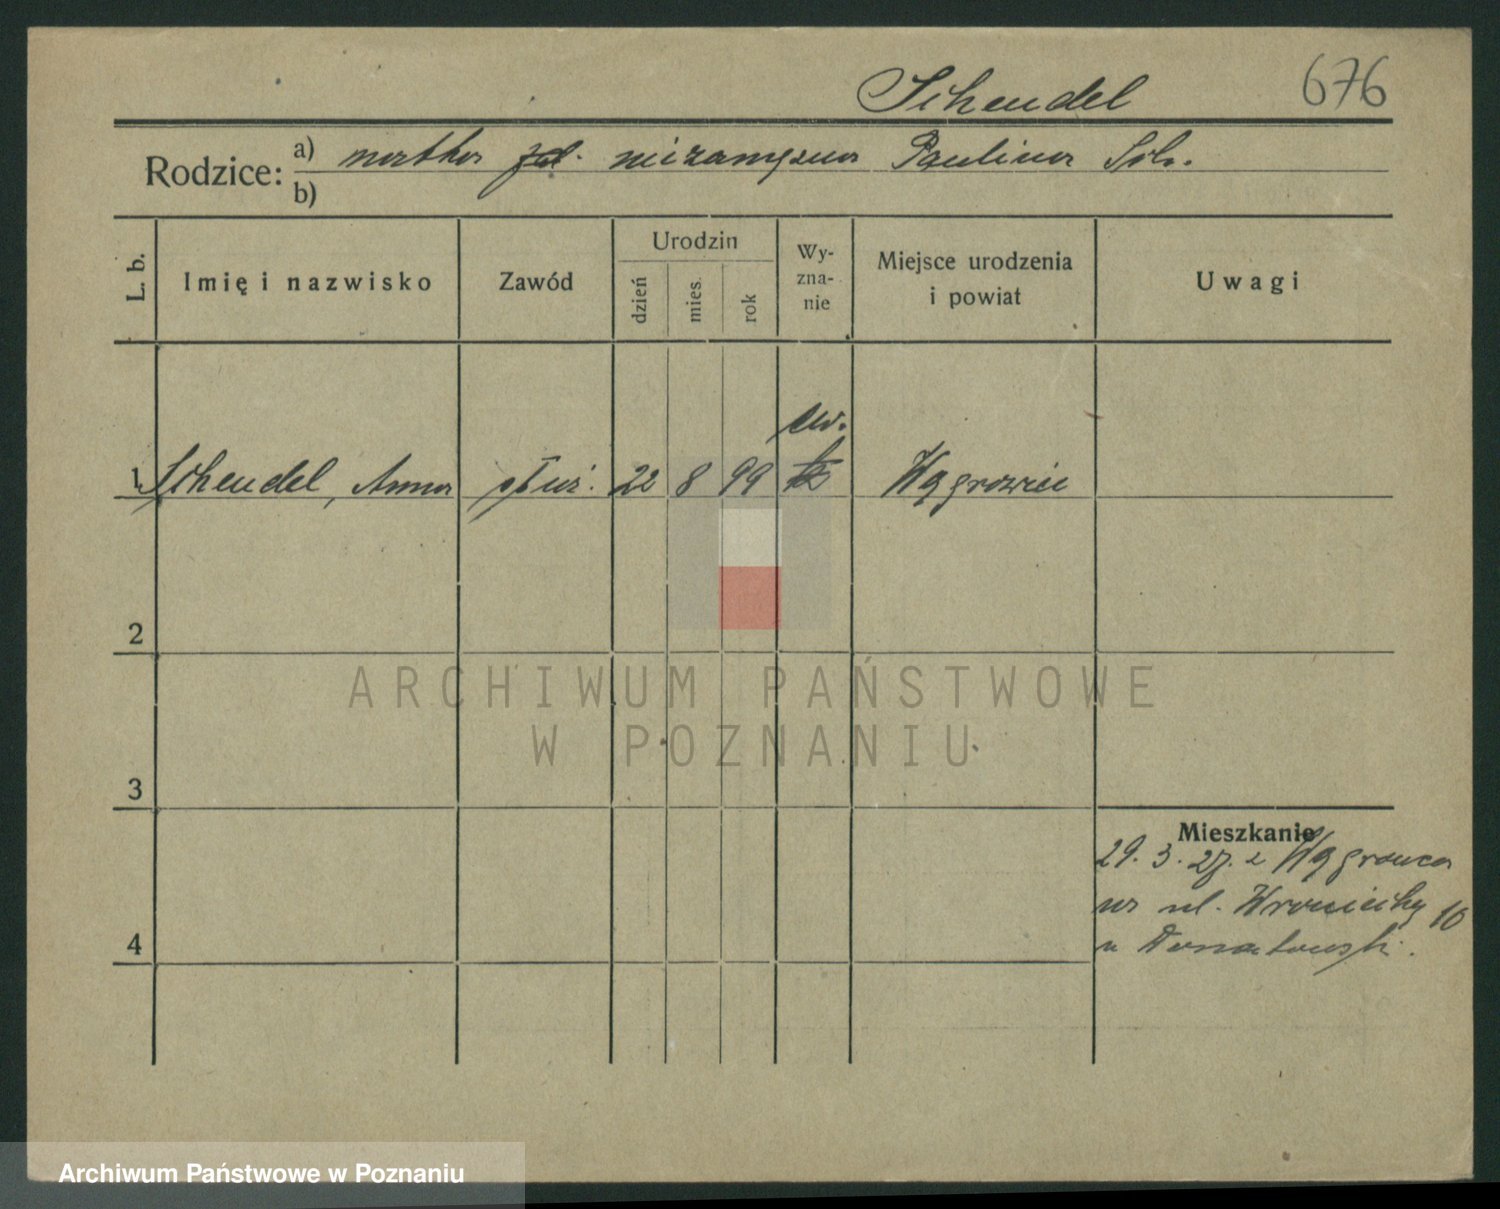 Schendel 676
Rodzice: a) matka niezamężna Paulina Sch.
b)
L. b.
Imię i nazwisko
Zawód
Urodzin
dzień
mies.
rok
Wy-
zna-
nie
Miejsce urodzenia
i powiat
Uwagi
ew.
1 Schendel, Anna służ. 22 8 99 Wągrowiec
2
3
4
Mieszkanie
29. 3. 27. z Wągrowca
na ul. Wroniecką 10
u
ARCHIWUM PAŃSTWOWE
W POZNANIU
Archiwum Państwowe w Poznaniu